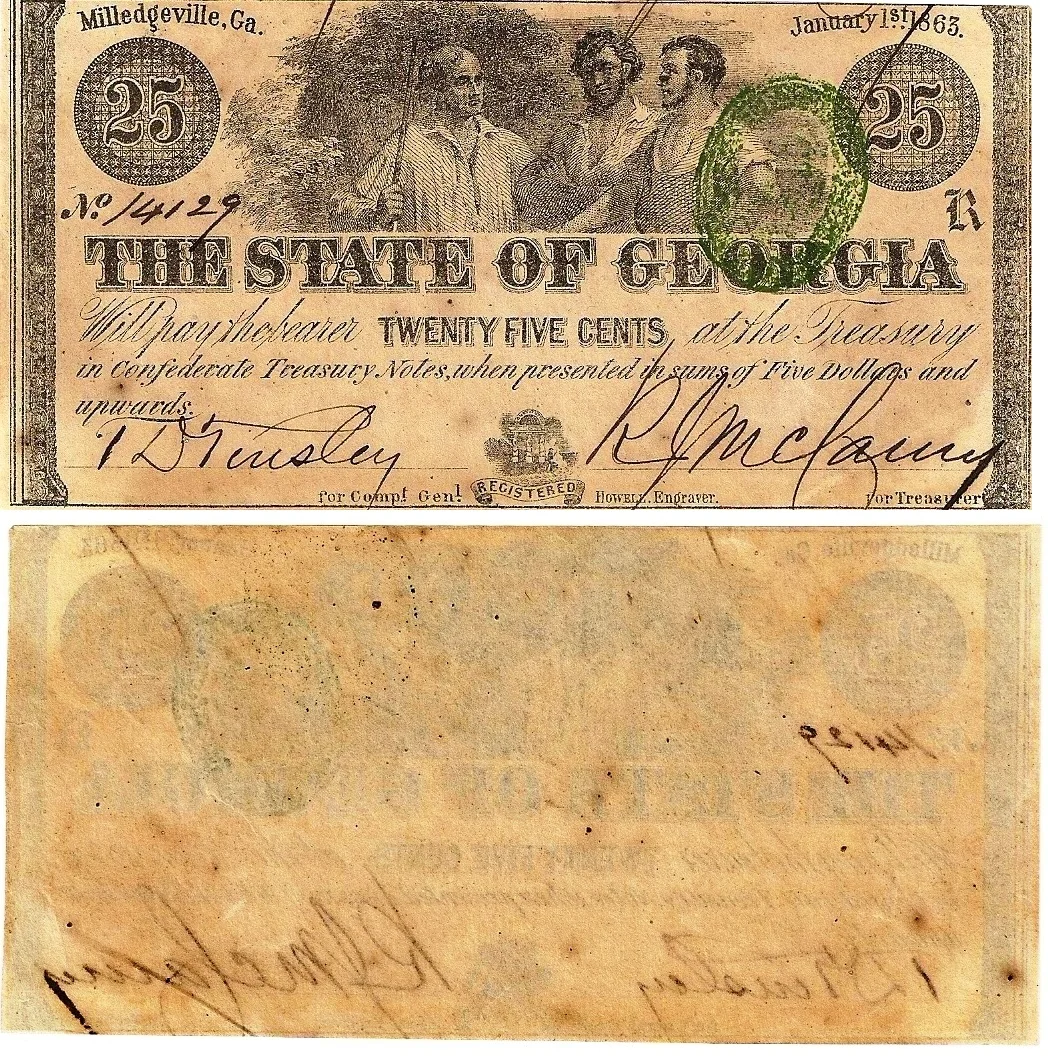 Milledgeville, Ga. January 1st. 1863.
25 25
No. 14129 R
THE STATE OF GEORGIA
Will pay the bearer TWENTY FIVE CENTS at the Treasury
in Confederate Treasury Notes, when presented in sums of Five Dollars and
upwards.
T D Tinsley
for Compt. Genl. REGISTERED HOWELL. Engraver. for Treasurer